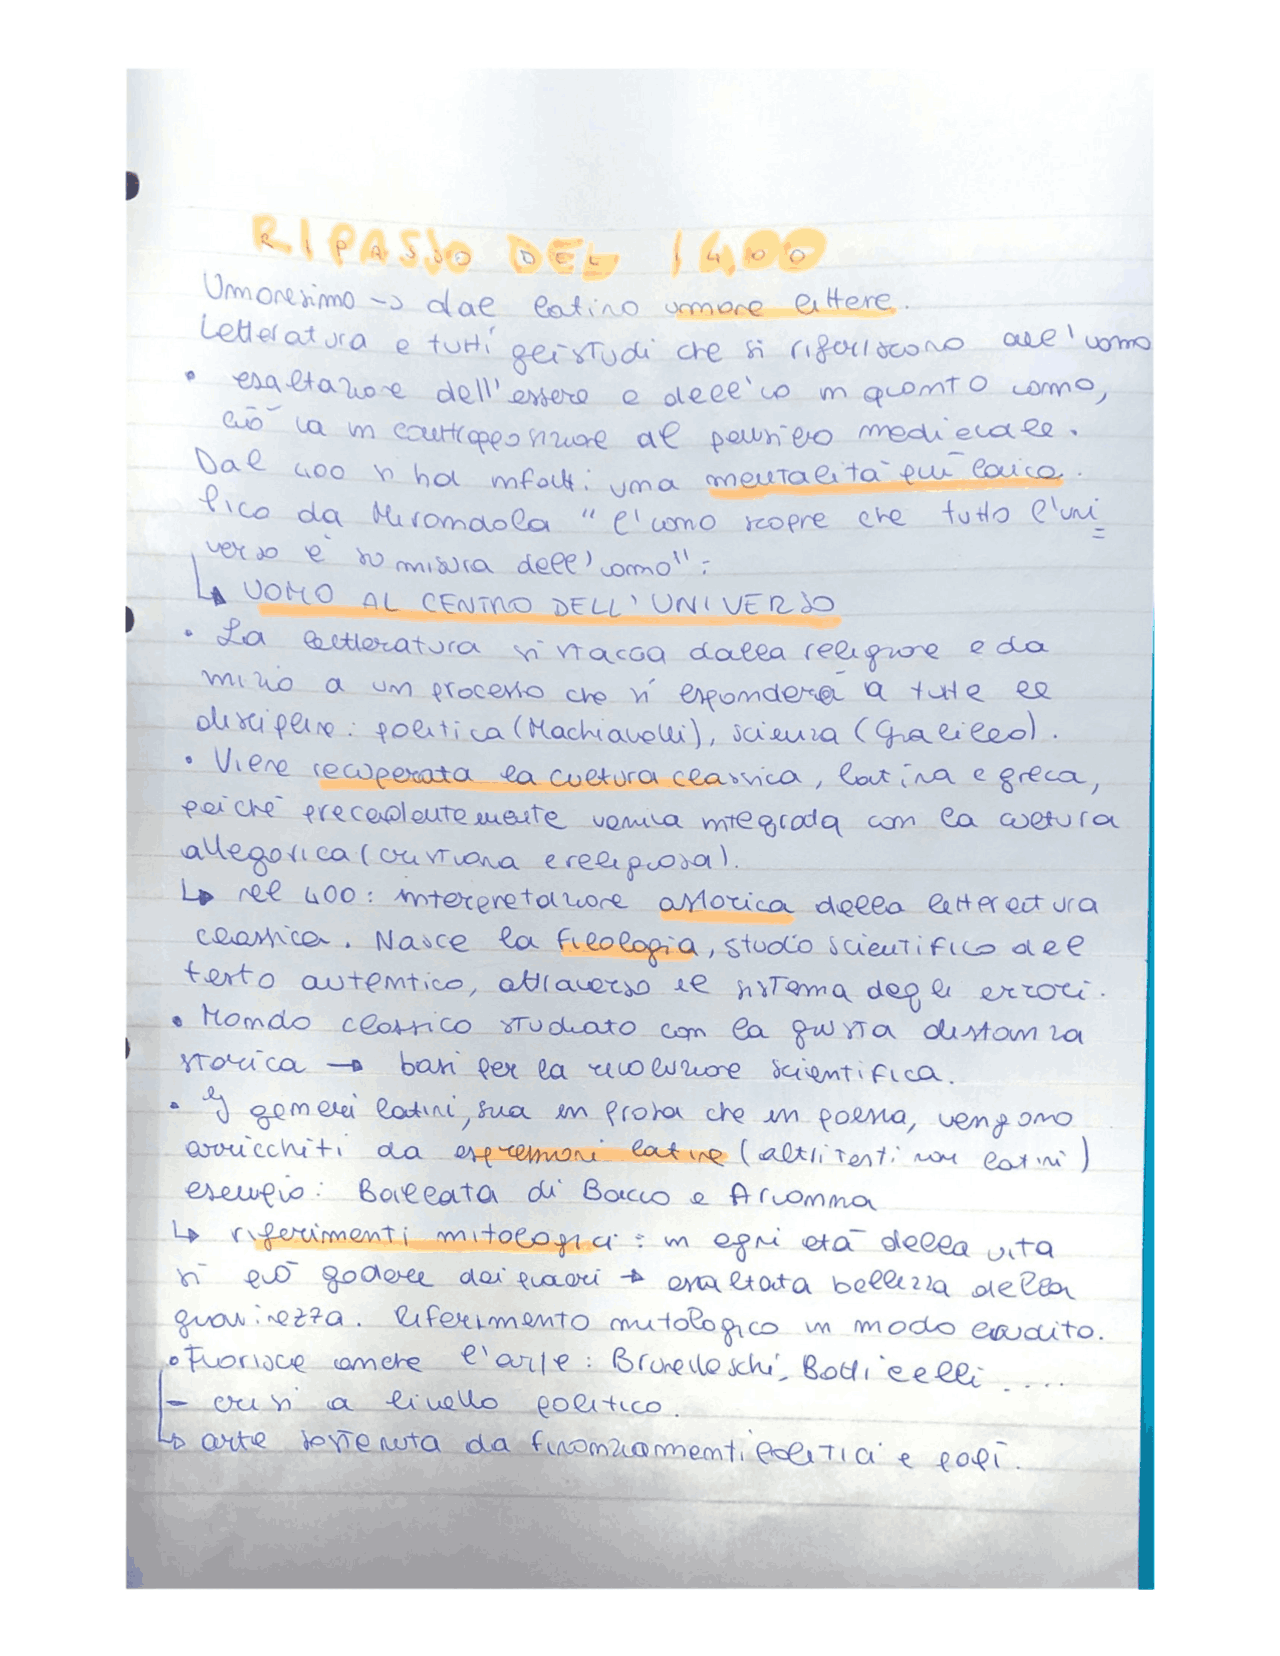 RIPASSO DEL 1400
Umanesimo → dal latino umane lettere.
Letteratura e tutti gli studi che si riferiscono all'uomo
• esaltazione dell'essere e dell'io in quanto uomo,
ciò va in contrapposizione al pensiero medievale.
Dal 400 si ha infatti una mentalità più laica.
Pico da Mirandola "l'uomo scopre che tutto l'uni=
verso è su misura dell'uomo":
↳ UOMO AL CENTRO DELL'UNIVERSO
• La letteratura si stacca dalla religione e da
inizio a un processo che si esponderà a tutte le
discipline: politica (Machiavelli), scienza (Galileo).
• Viene recuperata la cultura classica, latina e greca,
poiché precedentemente veniva integrada con la cultura
allegorica (cristiana e religiosa).
↳ nel 400: interpretazione astorica della letteratura
classica. Nasce la filologia, studio scientifico del
testo autentico, attraverso il sistema degli errori.
• Mondo classico studiato con la giusta distanza
storica → basi per la rivoluzione scientifica.
• I generi latini, sia in prosa che in poesia, vengono
arricchiti da espressioni latine (altri testi non latini)
esempio: Ballata di Bacco e Arianna
↳ riferimenti mitologici: in ogni età della vita
si può godere dei piaceri → esaltata bellezza della
giovinezza. Riferimento mitologico in modo erudito.
• Fiorisce anche l'arte: Brunelleschi, Botticelli....
- crisi a livello politico.
↳ arte sostenuta da finanziamenti politici e papi.